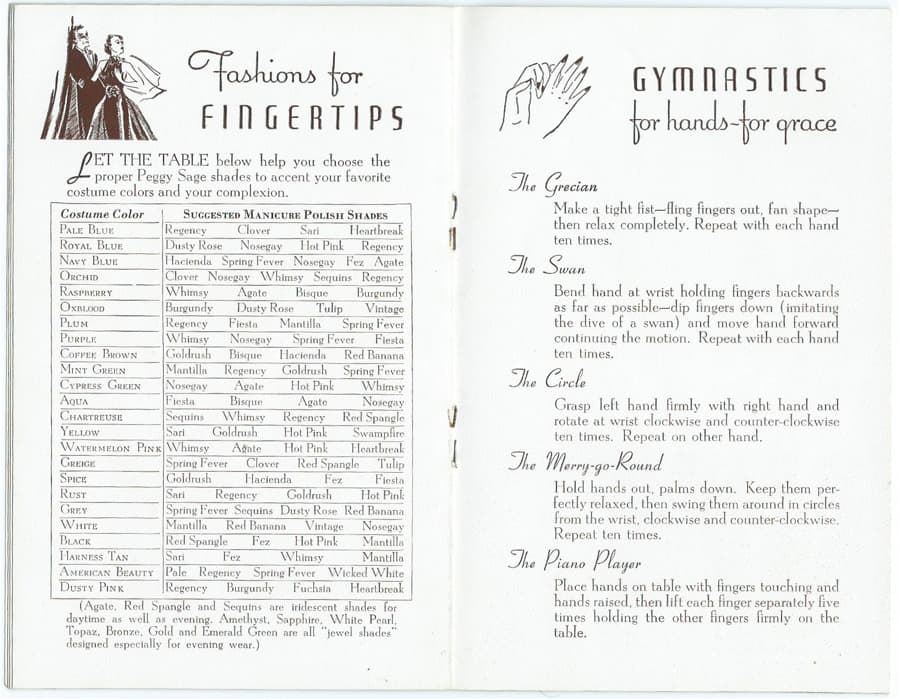 Fashions for
FINGERTIPS
LET THE TABLE below help you choose the
proper Peggy Sage shades to accent your favorite
costume colors and your complexion.
Costume Color SUGGESTED MANICURE POLISH SHADES
PALE BLUE Regency Clover Sari Heartbreak
ROYAL BLUE Dusty Rose Nosegay Hot Pink Regency
NAVY BLUE Hacienda Spring Fever Nosegay Fez Agate
ORCHID Clover Nosegay Whimsy Sequins Regency
RASPBERRY Whimsy Agate Bisque Burgundy
OXBLOOD Burgundy Dusty Rose Tulip Vintage
PLUM Regency Fiesta Mantilla Spring Fever
PURPLE Whimsy Nosegay Spring Fever Fiesta
COFFEE BROWN Goldrush Bisque Hacienda Red Banana
MINT GREEN Mantilla Regency Goldrush Spring Fever
CYPRESS GREEN Nosegay Agate Hot Pink Whimsy
AQUA Fiesta Bisque Agate Nosegay
CHARTREUSE Sequins Whimsy Regency Red Spangle
YELLOW Sari Goldrush Hot Pink Swampfire
WATERMELON PINK Whimsy Agate Hot Pink Heartbreak
GREIGE Spring Fever Clover Red Spangle Tulip
SPICE Goldrush Hacienda Fez Fiesta
RUST Sari Regency Goldrush Hot Pink
GREY Spring Fever Sequins Dusty Rose Red Banana
WHITE Mantilla Red Banana Vintage Nosegay
BLACK Red Spangle Fez Hot Pink Mantilla
HARNESS TAN Sari Fez Whimsy Mantilla
AMERICAN BEAUTY Pale Regency Spring Fever Wicked White
DUSTY PINK Regency Burgundy Fuchsia Heartbreak
(Agate, Red Spangle and Sequins are iridescent shades for
daytime as well as evening. Amethyst, Sapphire, White Pearl,
Topaz, Bronze, Gold and Emerald Green are all "jewel shades"
designed especially for evening wear.)
GYMNASTICS
for hands-for grace
The Grecian
Make a tight fist—fling fingers out, fan shape—
then relax completely. Repeat with each hand
ten times.
The Swan
Bend hand at wrist holding fingers backwards
as far as possible—dip fingers down (imitating
the dive of a swan) and move hand forward
continuing the motion. Repeat with each hand
ten times.
The Circle
Grasp left hand firmly with right hand and
rotate at wrist clockwise and counter-clockwise
ten times. Repeat on other hand.
The Merry-go-Round
Hold hands out, palms down. Keep them per-
fectly relaxed, then swing them around in circles
from the wrist, clockwise and counter-clockwise.
Repeat ten times.
The Piano Player
Place hands on table with fingers touching and
hands raised, then lift each finger separately five
times holding the other fingers firmly on the
table.